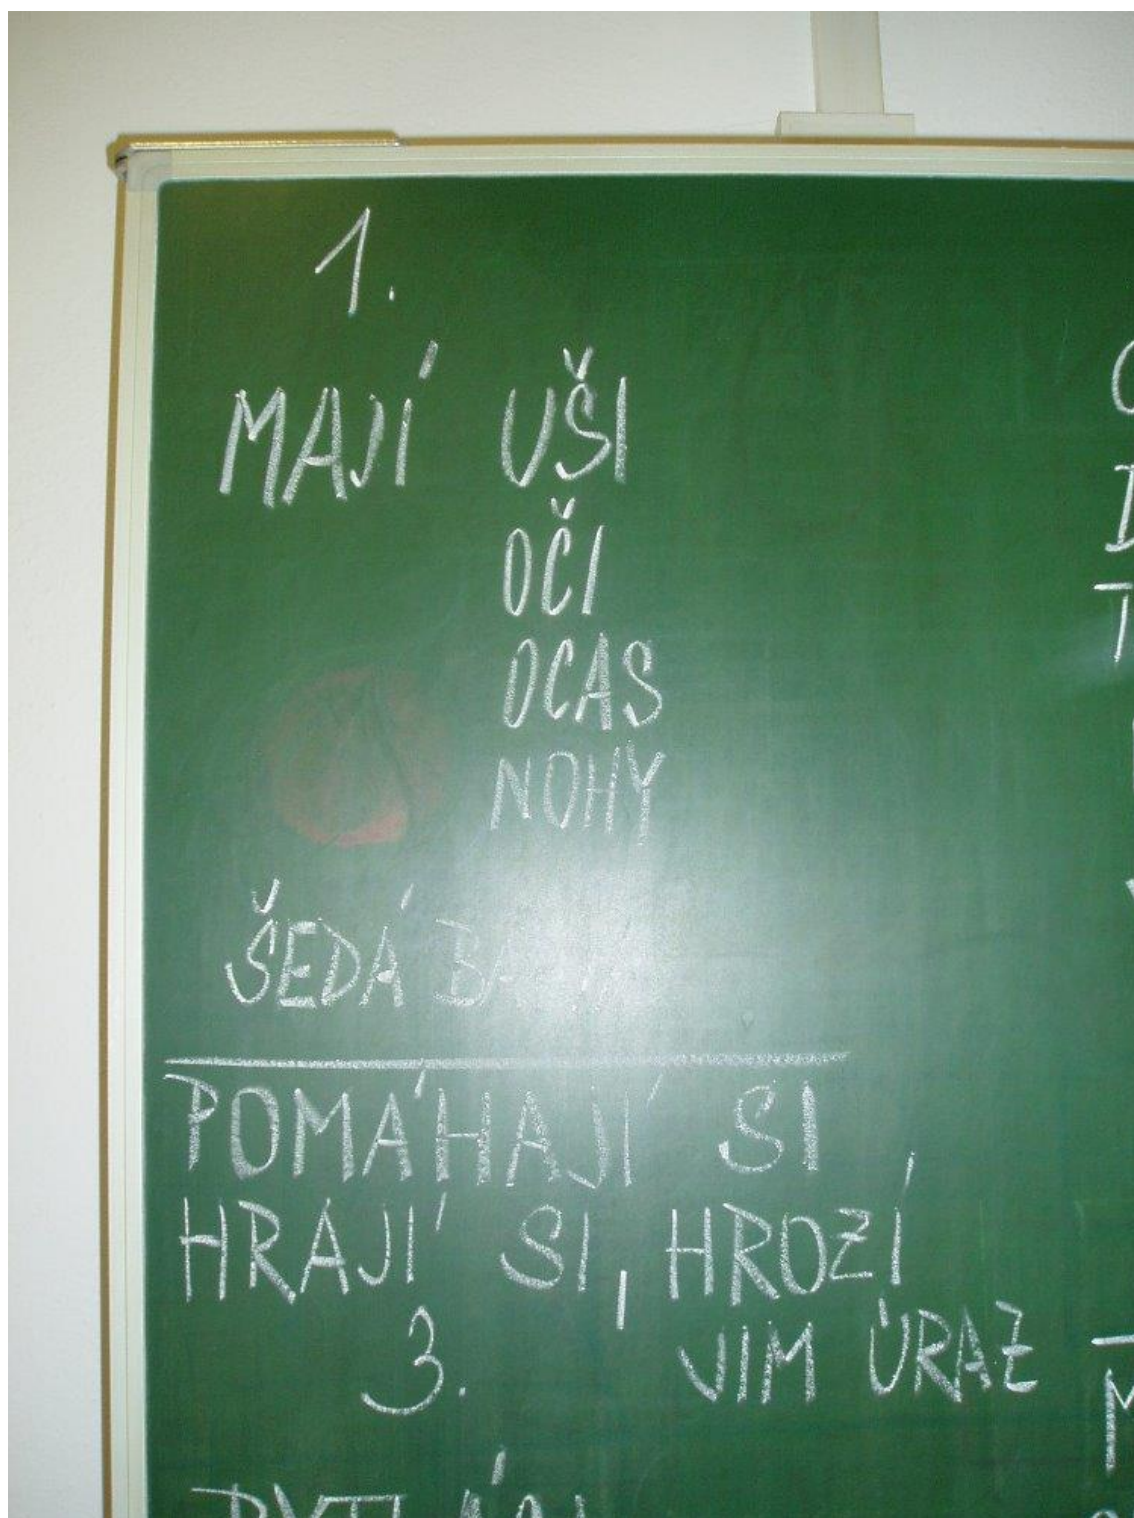 1.
MAJÍ UŠI
OČI
OCAS
NOHY
ŠEDÁ
POMÁHAJÍ SI,
HRAJÍ SI, HROZÍ
JIM ÚRAZ
3.